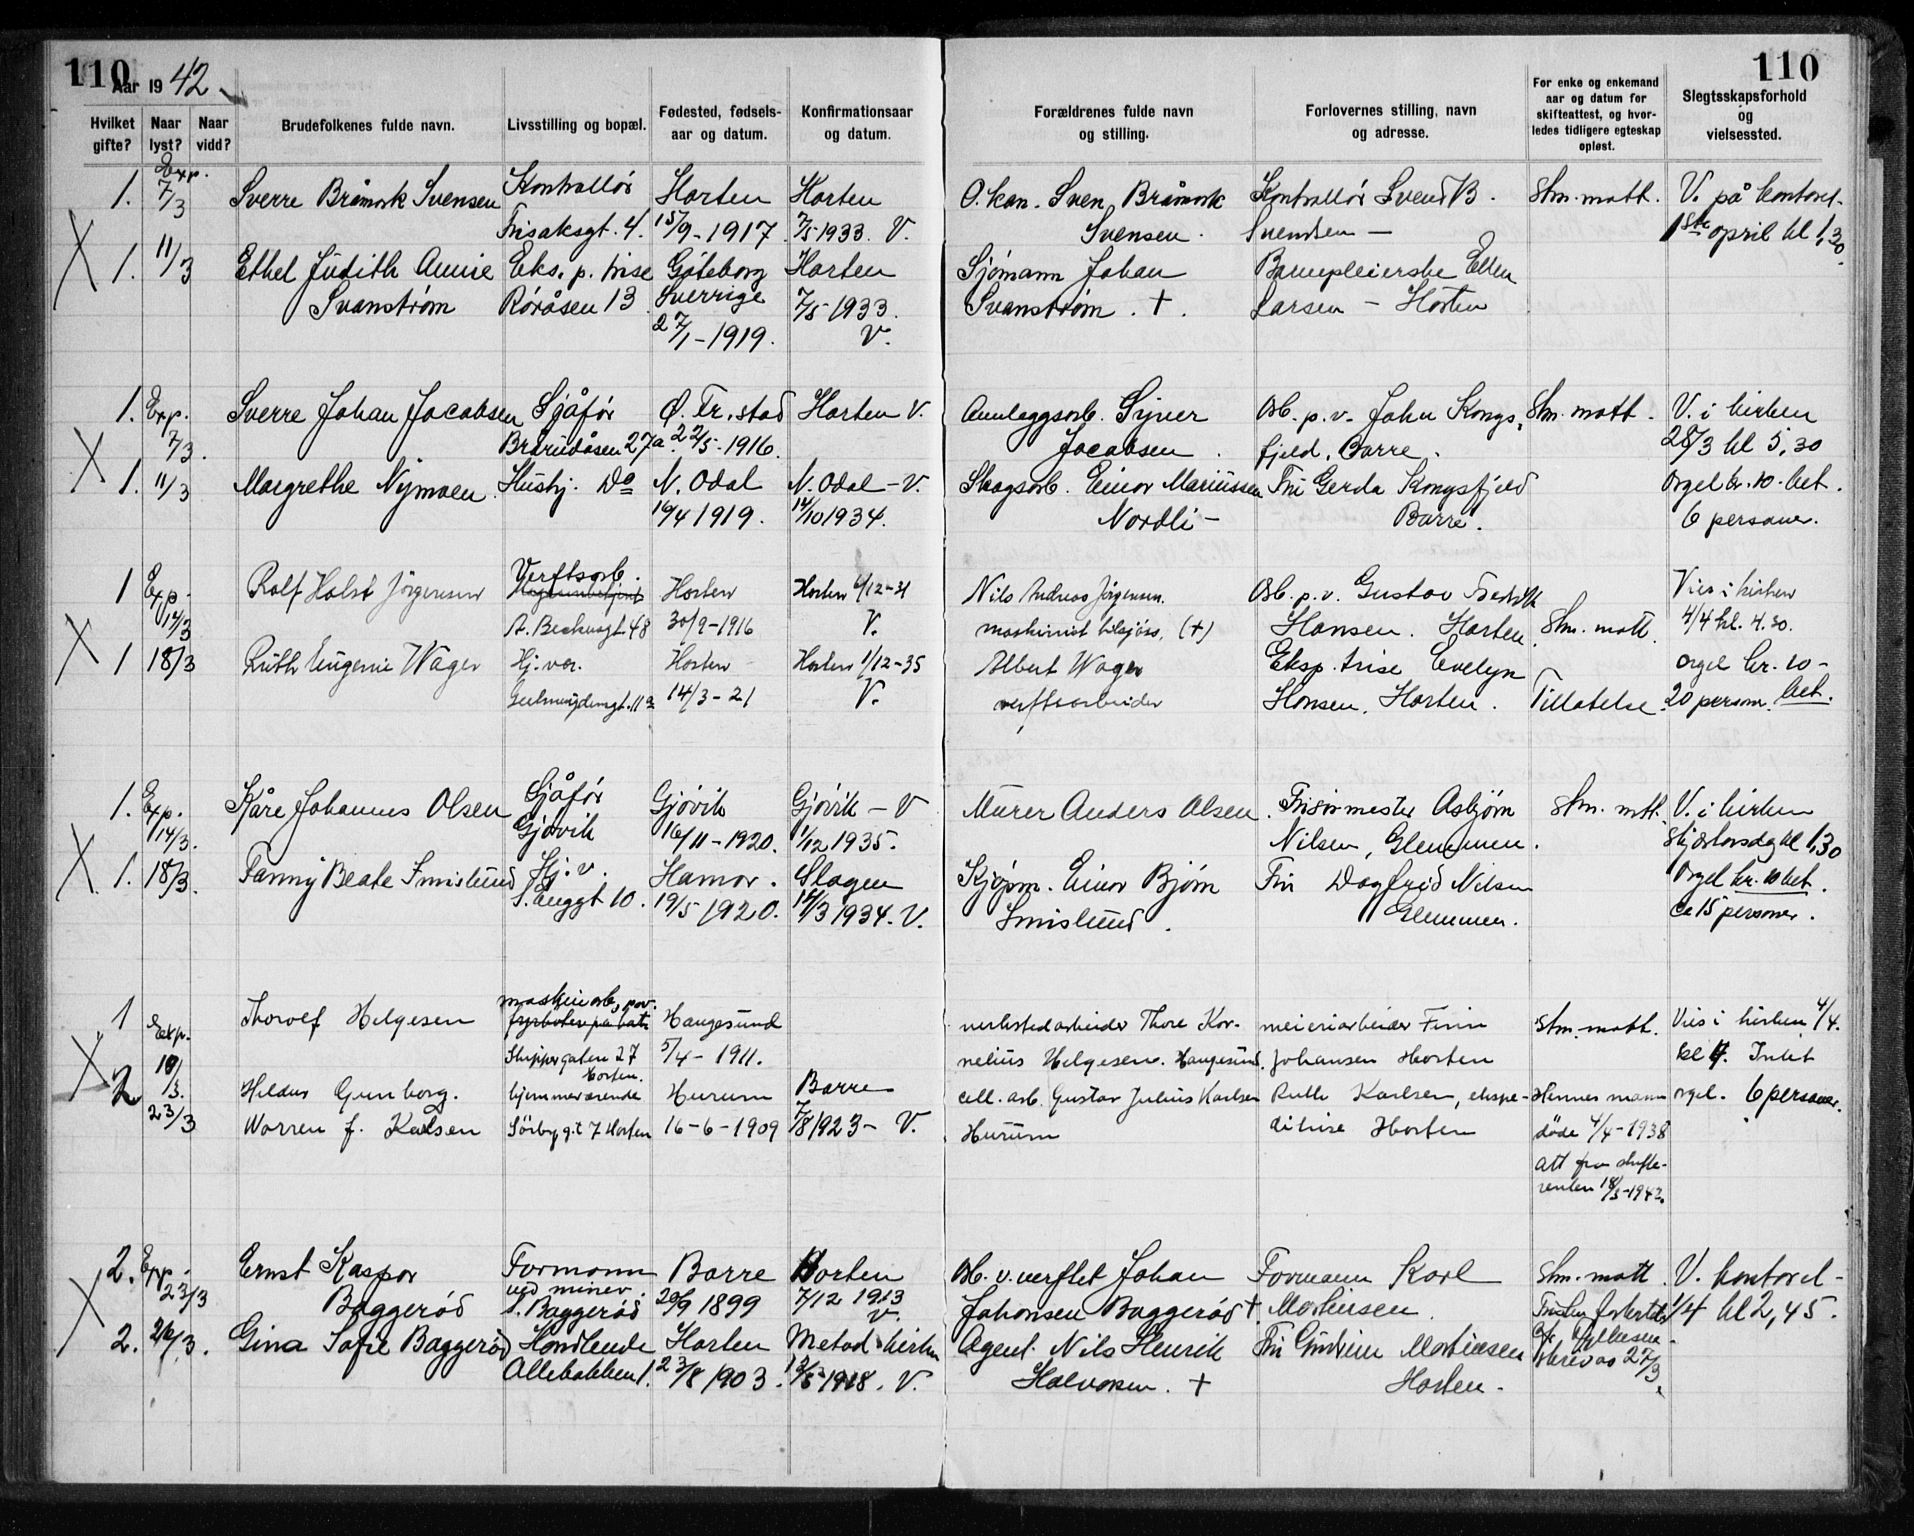 110
Aar 19 42
110
Hvilket gifte?
Naar lyst?
Naar vidd?
Brudefolkenes fulde navn.
Livsstilling og bopæl.
Fødested, fødsels-
aar og datum.
Konfirmationsaar
og datum.
Forældrenes fulde navn
og stilling.
Forlovernes stilling, navn
og adresse.
For enke og enkemand
aar og datum for
skifteattest, og hvor-
ledes tidligere egteskap
opløst.
Slegtsskapsforhold
og
vielsessted.
Exp.
1. 7/3 Sverre Bråmork Svensen Kontrollør Horten Horten O. kan. Sven Bråmork Kontrollør Svend B. Skm. matt. V. på kontoret
Frisaksgt. 4. 15/9-1917. 7/5 1933. V. Svensen. Svendsen — 1ste april kl 1,30
1. 11/3 Ethel Judith Annie Eks. p. trise Göteborg Horten Sjømann Johan Barnepleierske Ellen
Svanstrøm Røråsen 13 Sverrige 7/5 1933. Svanstrøm. +. Larsen — Horten
27/1-1919. V.
1. Exp. Sverre Johan Jacobsen Sjåfør Ø. Fr. stad Horten V. Anleggsarb. Syver Arb. p. v. John Kongs- Skm. matt. V. i kirken
7/3. Brårudåsen 27a. 22/5-1916. Jacobsen. fjeld, Borre. 28/3 kl 5,30
1. 11/3 Margrethe Nymoen. Hushj. Do N. Odal N. Odal - V. Skogsarb. Einar Mariussen Fru Gerda Kongsfjeld Orgel kr. 10. bet.
19/4 1919. 14/10 1934. Nordli — Borre. 6 personer.
1 Exp. Rolf Holst Jörgensen Verftsarb. Horten Horten 6/12-31 Nils Andreas Jörgensen. Arb. p. v. Gustav Fredrik Vies i kirken
14/3 A. Becksgt. 48 30/9-1916 V. maskinist tilsjøss, (+) Hansen. Horten. Skm. matt. 4/4 kl. 4.30.
1 18/3 Ruth Eugenie Wager Hj. vær. Horten Horten 1/12-35 Albert Wager Eksp. trise Evelyn orgel kr. 10-
14/3-21 V. verftsarbeider Hansen, Horten. Tillatelse. 20 person. bet.
1. Exp. Kåre Johannes Olsen Sjåfør Gjövik Gjövik - V Murer Anders Olsen. Frisørmester Asbjørn Skm. matt. V. i kirken
14/3. Gjøvik 16/11-1920. 1/12 1935. Nilsen, Glemmen. Skjærtorsdag kl 1,30
1. 18/3. Fanny Beate Smislund Hj. v. Hamar. Slagen Kjøpm. Einar Bjørn Fru Dagfrid Nilsen Orgel kr. 10 bet.
S. Langgt 10. 19/5 1920. 18/3 1934. V. Smislund. Glemmen. ca 15 personer.
1 Exp. Thorolf Helgesen maskinarb. p. v. Haugesund verkstedarbeider Thore Kor- meieriarbeider Finn Skm. matt. Vies i kirken 4/4.
19/3. Skippergaten 27 5/4-1911. nelius Helgesen. Haugesund. Johansen Horten kl 4. Intet
Horten.
2 Hildur Gunborg. hjemmeværende Hurum Borre cell. arb. Gustav Julius Karlsen Ruth Karlsen, ekspe- Hennes mann orgel. 6 personer.
23/3 Worren f. Karlsen Sörbygt 7 Horten 16-6-1909 7/8 1923 - V. Hurum ditrise Horten döde 4/4-1938
att fra skifte-
retten 18/3-1942.
2. Exp. Ernst Kaspar Formann Borre Horten Arb. v. verftet Johan Formann Karl Skm. matt. V. kontoret -
23/3 Baggerød ved miner. S. Baggerød 20/9 1899 7/12 1913 V. Johansen Baggerød +. Martinsen. 1/4 kl 2,45.
2. 26/3. Gina Sofie Baggerød Handlende Horten Metod. kirken Agent. Nils Henrik Fru Gudrun Martinsen
Allebakken 1. 23/8 1903. 12/5 1918. V. Halvorsen. + Horten.